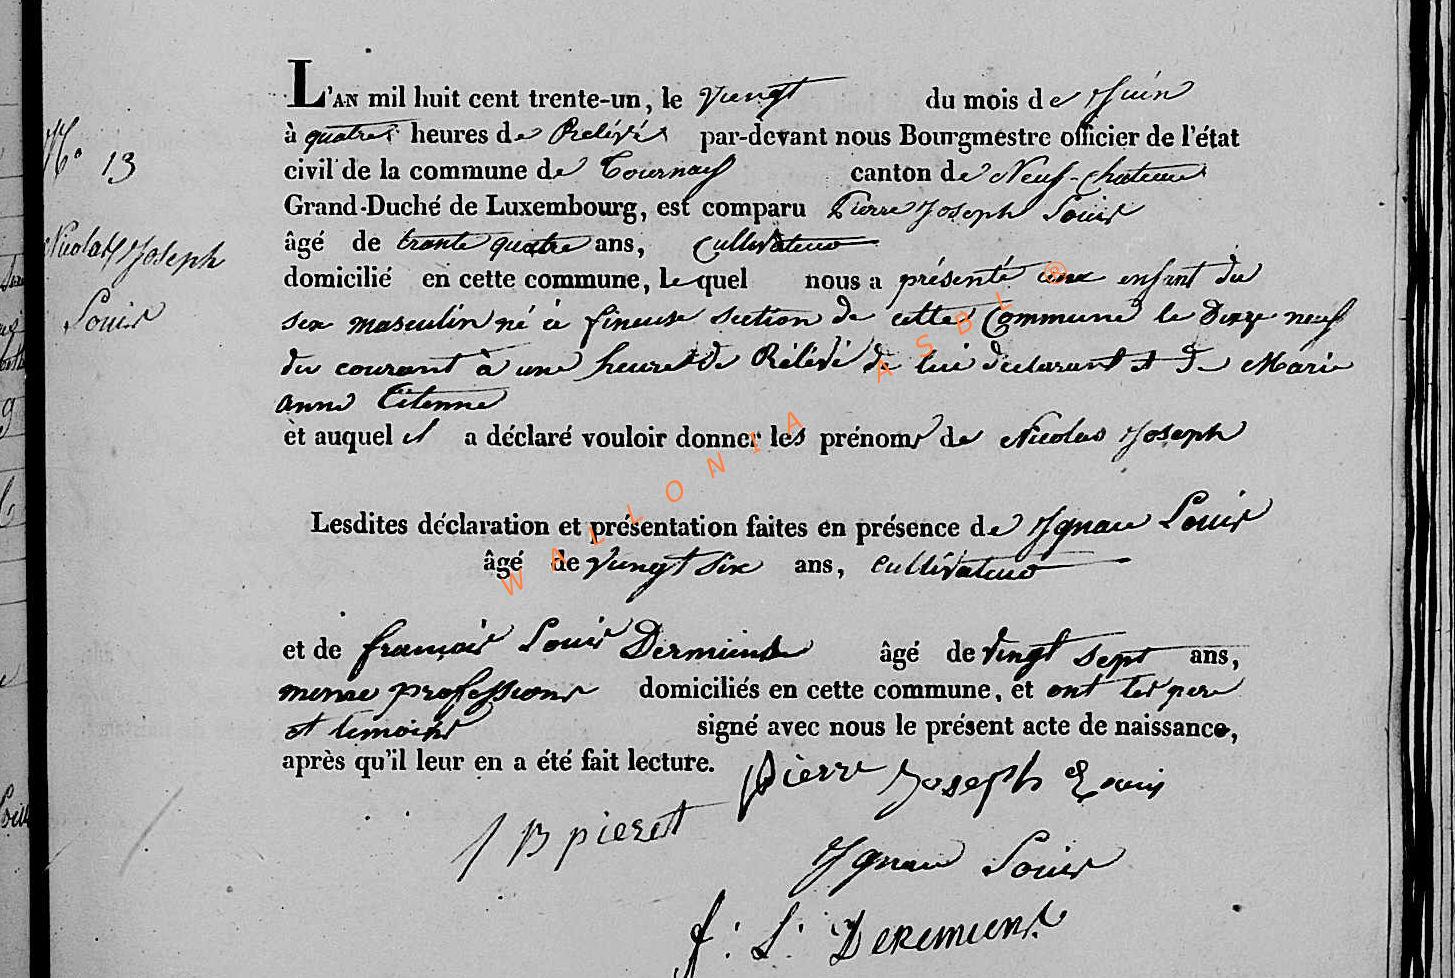 L'AN mil huit cent trente-un, le vingt du mois de Juin
à quatres heures de Relévé par-devant nous Bourgmestre officier de l'état
N.° 13
civil de la commune de Tournay canton de Neuf-chateau
Grand-Duché de Luxembourg, est comparu Pierre Joseph Louis
Nicolas Joseph
Louis
âgé de trante quatre ans, cultivateur
domicilié en cette commune, lequel nous a présenté une enfant du
sex masculin né à fineuse section de cette Commune le dix neuf
du courant à une heure de Rélévé de lui déclarant et de Marie
anne Etienne
et auquel il a déclaré vouloir donner les prénoms de Nicolas Joseph
Lesdites déclaration et présentation faites en présence de Ignace Louis
âgé de vingt six ans, cultivateur
et de françois Louis Dermience âgé de vingt sept ans,
meme professions domiciliés en cette commune, et ont les pere
et temoins signé avec nous le présent acte de naissance,
après qu'il leur en a été fait lecture.
Pierre Joseph Louis
J B pieret
Ignace Louis
f. L. Deremiens
WALLONIA ASBL ®